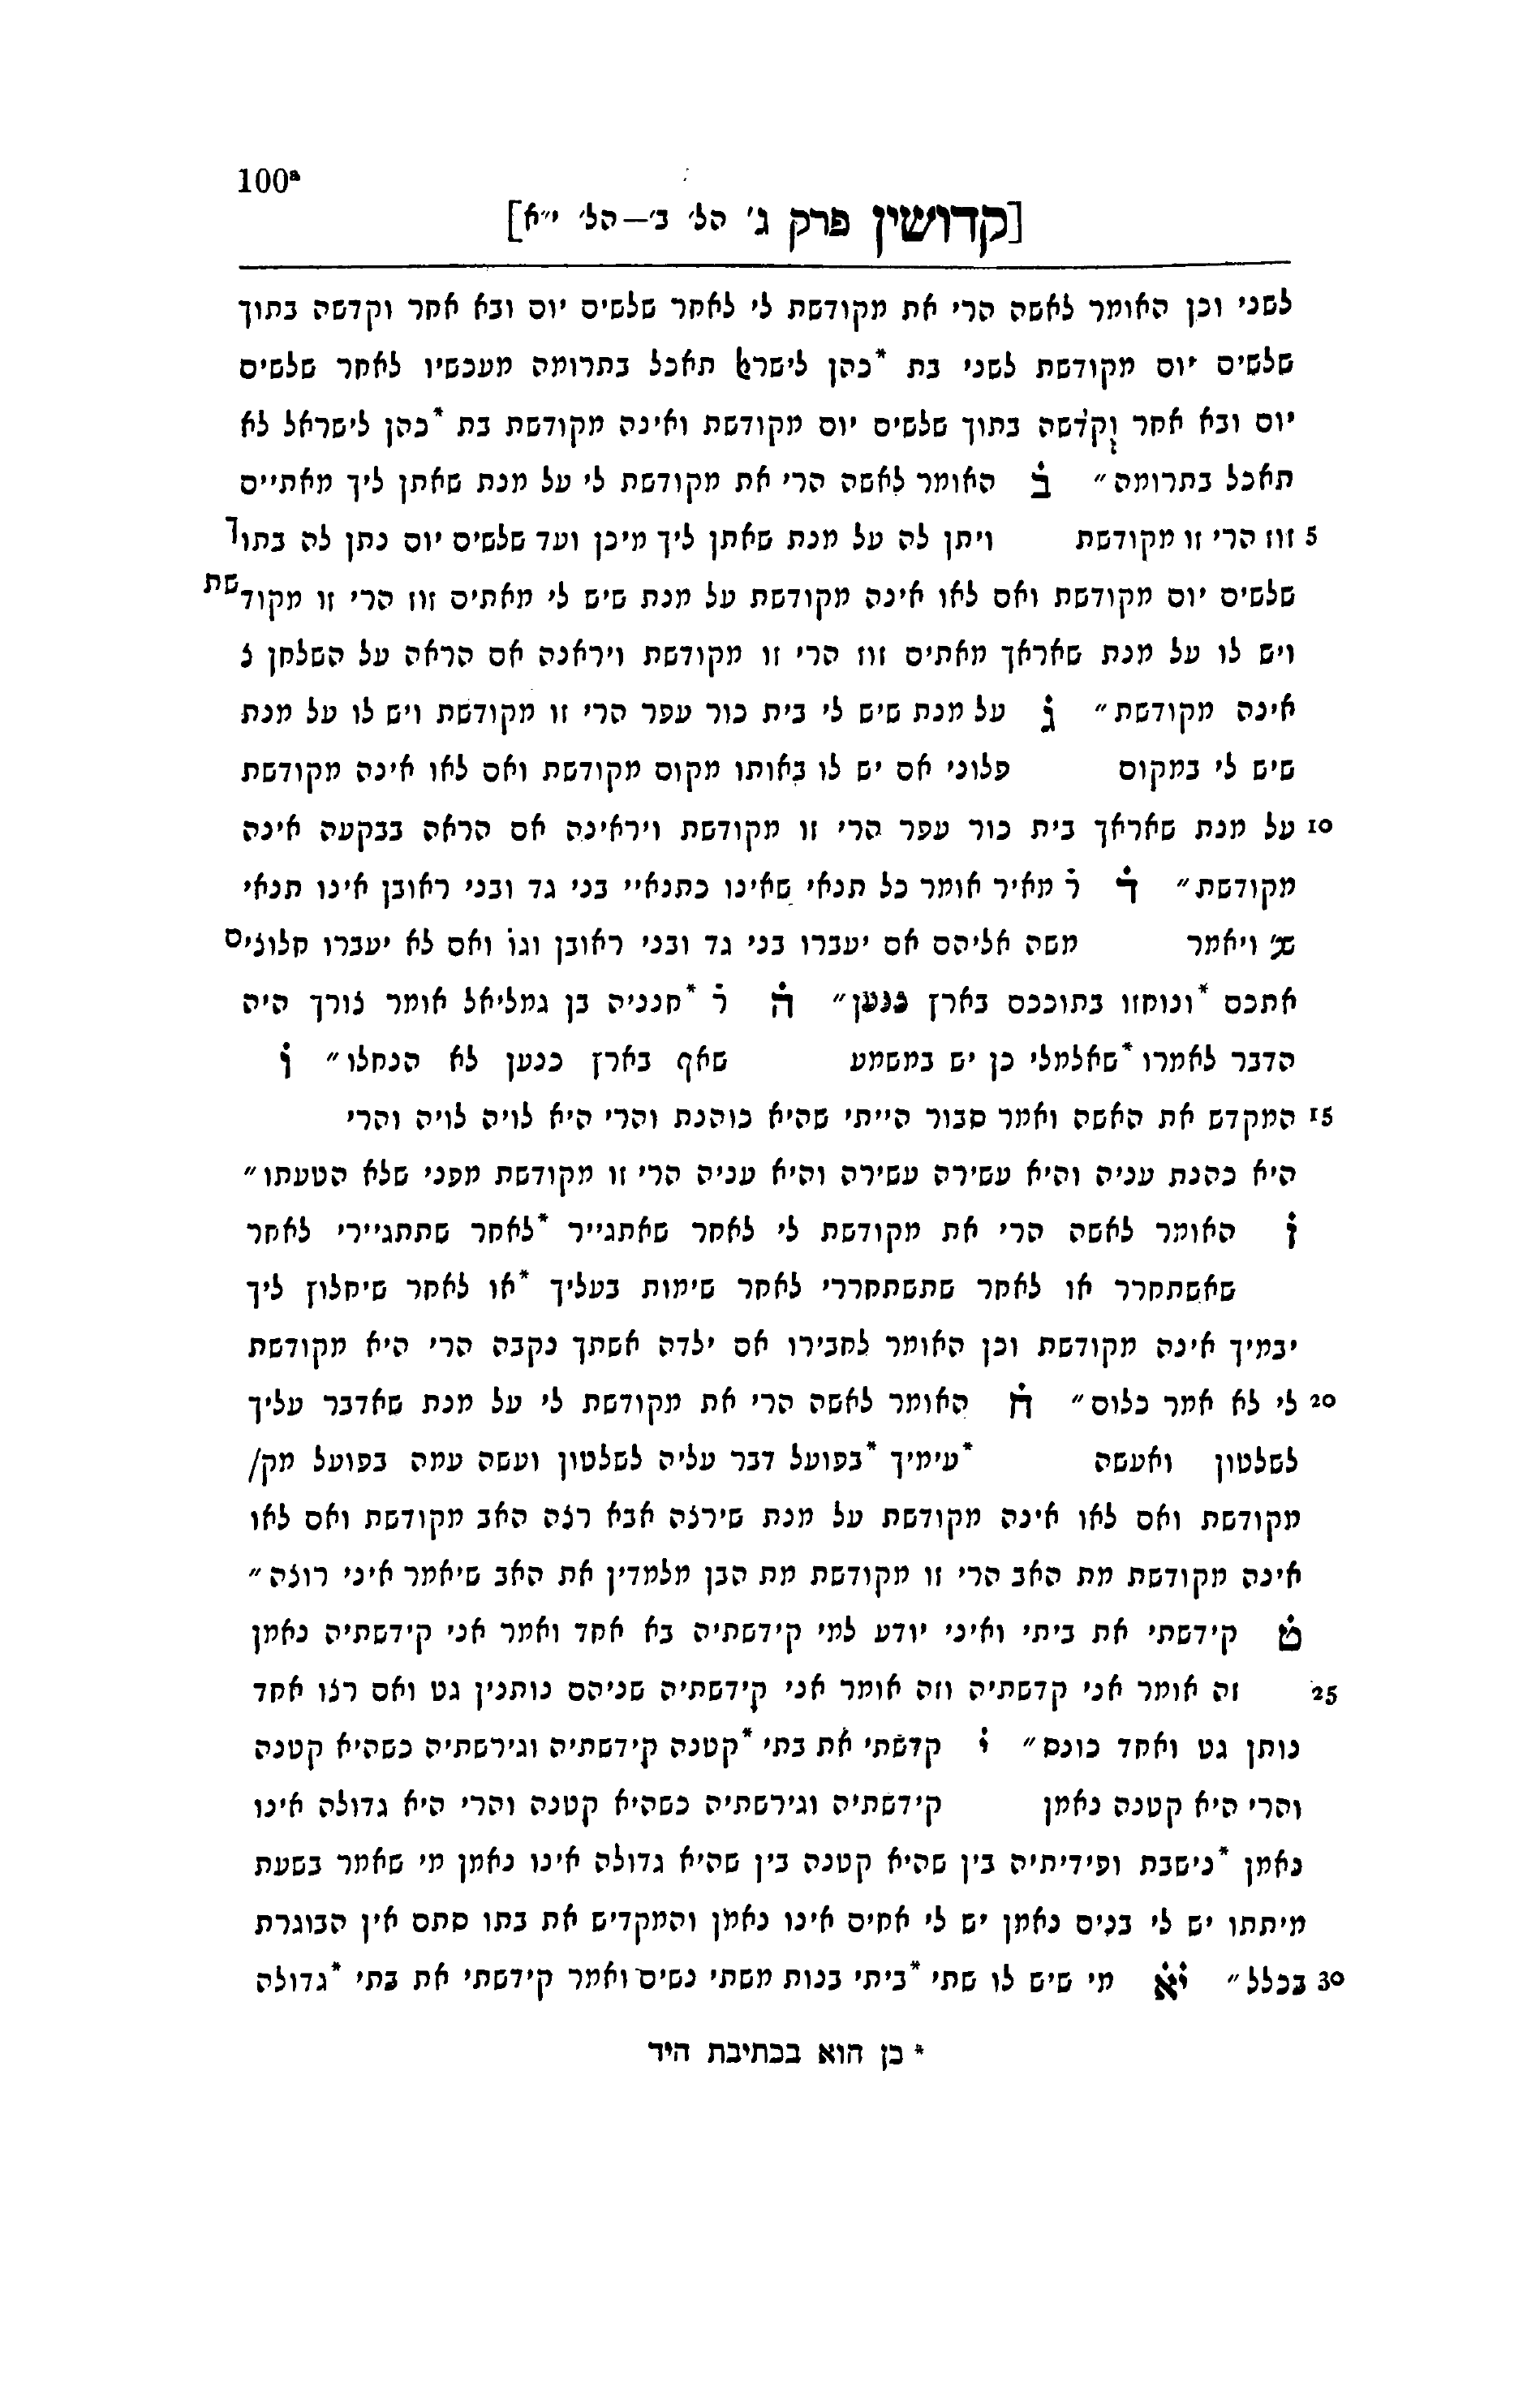 100ª
[קדושין פרק ג' הל' ב'—הל' י״א]
לשני וכן האומר לאשה הרי את מקודשת לי לאחר שלשים יום ובא אחר וקדשה בתוך
שלשים יום מקודשת לשני בת *כהן לישרﭏ תאכל בתרומה מעכשיו לאחר שלשים
יום ובא אחר וקדשה בתוך שלשים יום מקודשת ואינה מקודשת בת *כהן לישראל לא
תאכל בתרומה״ ב האומר לאשה הרי את מקודשת לי על מנת שאתן ליך מאתיים
5 זוז הרי זו מקודשת ויתן לה על מנת שאתן ליך מיכן ועד שלשים יום נתן לה בתוך
שלשים יום מקודשת ואם לאו אינה מקודשת על מנת שיש לי מאתים זוז הרי זו מקודשת
ויש לו על מנת שאראך מאתים זוז הרי זו מקודשת ויראנה אם הראה על השלחן צ
אינה מקודשת״ ג על מנת שיש לי בית כור עפר הרי זו מקודשת ויש לו על מנת
שיש לי במקום פלוני אם יש לו באותו מקום מקודשת ואם לאו אינה מקודשת
10 על מנת שאראך בית כור עפר הרי זו מקודשת ויראינה אם הראה בבקעה אינה
מקודשת״ ד ר מאיר אומר כל תנאי שאינו כתנאיי בני גד ובני ראובן אינו תנאי
שנ' ויאמר משה אליהם אם יעברו בני גד ובני ראובן וגו ואם לא יעברו חלוצים
אתכם *ונוחזו בתוככם בארץ כנען״ ה ר *חנניה בן גמליאל אומר צורך היה
הדבר לאמרו *שאלמלי כן יש במשמע שאף בארץ כנען לא הנחלו״ ו
15 המקדש את האשה ואמר סבור הייתי שהיא כוהנת והרי היא לויה לויה והרי
היא כהנת עניה והיא עשירה עשירה והיא עניה הרי זו מקודשת מפני שלא הטעתו״
ז האומר לאשה הרי את מקודשת לי לאחר שאתגייר *לאחר שתתגיירי לאחר
שאשתחרר או לאחר שתשתחררי לאחר שימות בעליך *או לאחר שיחלוץ ליך
יבמיך אינה מקודשת וכן האומר לחבירו אם ילדה אשתך נקבה הרי היא מקודשת
20 לי לא אמר כלום״ ח האומר לאשה הרי את מקודשת לי על מנת שאדבר עליך
לשלטון ואעשה *עימיך *בפועל דבר עליה לשלטון ועשה עמה בפועל מק/
מקודשת ואם לאו אינה מקודשת על מנת שירצה אבא רצה האב מקודשת ואם לאו
אינה מקודשת מת האב הרי זו מקודשת מת הבן מלמדין את האב שיאמר איני רוצה״
ט קידשתי את ביתי ואיני יודע למי קידשתיה בא אחד ואמר אני קידשתיה נאמן
25 זה אומר אני קדשתיה וזה אומר אני קידשתיה שניהם נותנין גט ואם רצו אחד
נותן גט ואחד כונס״ י קדשתי את בתי *קטנה קידשתיה וגירשתיה כשהיא קטנה
והרי היא קטנה נאמן קידשתיה וגירשתיה כשהיא קטנה והרי היא גדולה אינו
נאמן *נישבת ופידיתיה בין שהיא קטנה בין שהיא גדולה אינו נאמן מי שאמר בשעת
מיתתו יש לי בנים נאמן יש לי אחים אינו נאמן והמקדיש את בתו סתם אין הבוגרת
30 בכלל״ יא מי שיש לו שתי *ביתי בנות משתי נשים ואמר קידשתי את בתי *גדולה
* כן הוא בכתיבת היד